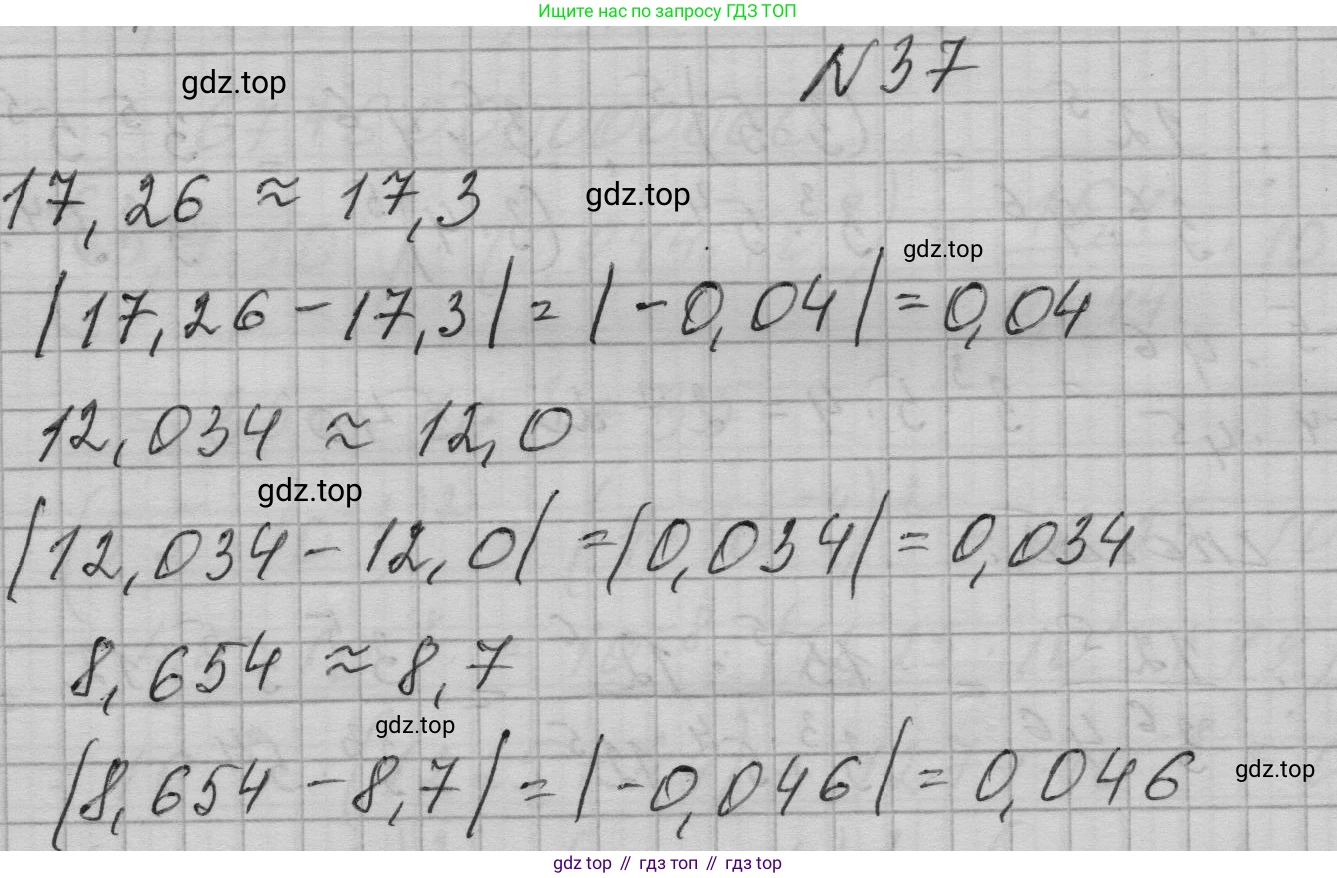 Ищите нас по запросу ГДЗ ТОП
gdz.top
N 37
17,26 ≈ 17,3
gdz.top
gdz.top
|17,26 - 17,3| = |-0,04| = 0,04
12,034 ≈ 12,0
gdz.top
|12,034 - 12,0| = |0,034| = 0,034
8,654 ≈ 8,7
gdz.top
|8,654 - 8,7| = |-0,046| = 0,046
gdz.top
gdz top // гдз топ // гдз top